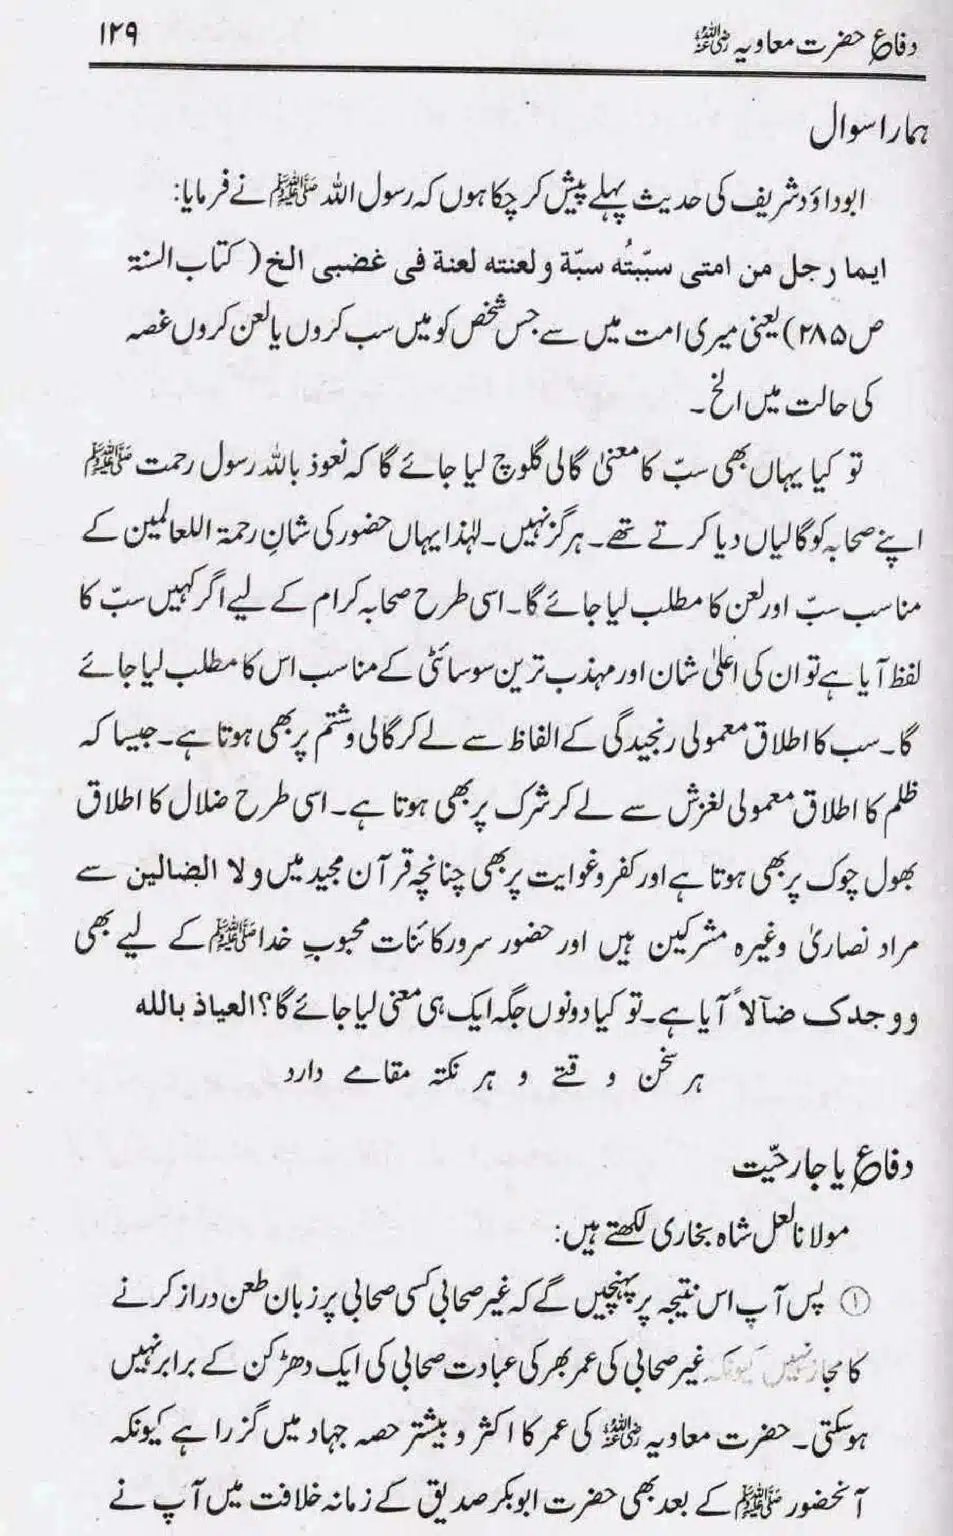 دفاعِ حضرت معاویہ رضی اللہ عنہ ۱۲۹
ہمارا سوال
ابوداؤد شریف کی حدیث پہلے پیش کر چکا ہوں کہ رسول اللہ ﷺ نے فرمایا:
ایما رجل من امتی سبّبتُه سبّة ولعنته لعنة فی غضبی الخ (کتاب السنة
ص ۲۸۵) یعنی میری امت میں سے جس شخص کو میں سب کروں یا لعن کروں غصہ
کی حالت میں الخ۔
تو کیا یہاں بھی سبّ کا معنیٰ گالی گلوچ لیا جائے گا کہ نعوذ باللہ رسول رحمت ﷺ
اپنے صحابہ کو گالیاں دیا کرتے تھے۔ ہرگز نہیں۔ لہٰذا یہاں حضور کی شانِ رحمۃ اللعالمین کے
مناسب سبّ اور لعن کا مطلب لیا جائے گا۔ اسی طرح صحابہ کرام کے لیے اگر کہیں سبّ کا
لفظ آیا ہے تو ان کی اعلیٰ شان اور مہذب ترین سوسائٹی کے مناسب اس کا مطلب لیا جائے
گا۔ سب کا اطلاق معمولی رنجیدگی کے الفاظ سے لے کر گالی وشتم پر بھی ہوتا ہے۔ جیسا کہ
ظلم کا اطلاق معمولی لغزش سے لے کر شرک پر بھی ہوتا ہے۔ اسی طرح ضلال کا اطلاق
بھول چوک پر بھی ہوتا ہے اور کفر وغوایت پر بھی چنانچہ قرآن مجید میں ولا الضالین سے
مراد نصاریٰ وغیرہ مشرکین ہیں اور حضور سرور کائنات محبوبِ خدا ﷺ کے لیے بھی
ووجدک ضآلاً آیا ہے۔ تو کیا دونوں جگہ ایک ہی معنی لیا جائے گا؟ العیاذ بالله
ہر سخن و قتے و ہر نکتہ مقامے دارد
دفاعِ یا جارحیّت
مولانا لعل شاہ بخاری لکھتے ہیں:
① پس آپ اس نتیجہ پر پہنچیں گے کہ غیر صحابی کسی صحابی پر زبان طعن دراز کرنے
کا مجاز نہیں کیونکہ غیر صحابی کی عمر بھر کی عبادت صحابی کی ایک دھڑکن کے برابر نہیں
ہوسکتی۔ حضرت معاویہ رضی اللہ عنہ کی عمر کا اکثر و بیشتر حصہ جہاد میں گزرا ہے کیونکہ
آنحضور ﷺ کے بعد بھی حضرت ابوبکر صدیق کے زمانہ خلافت میں آپ نے